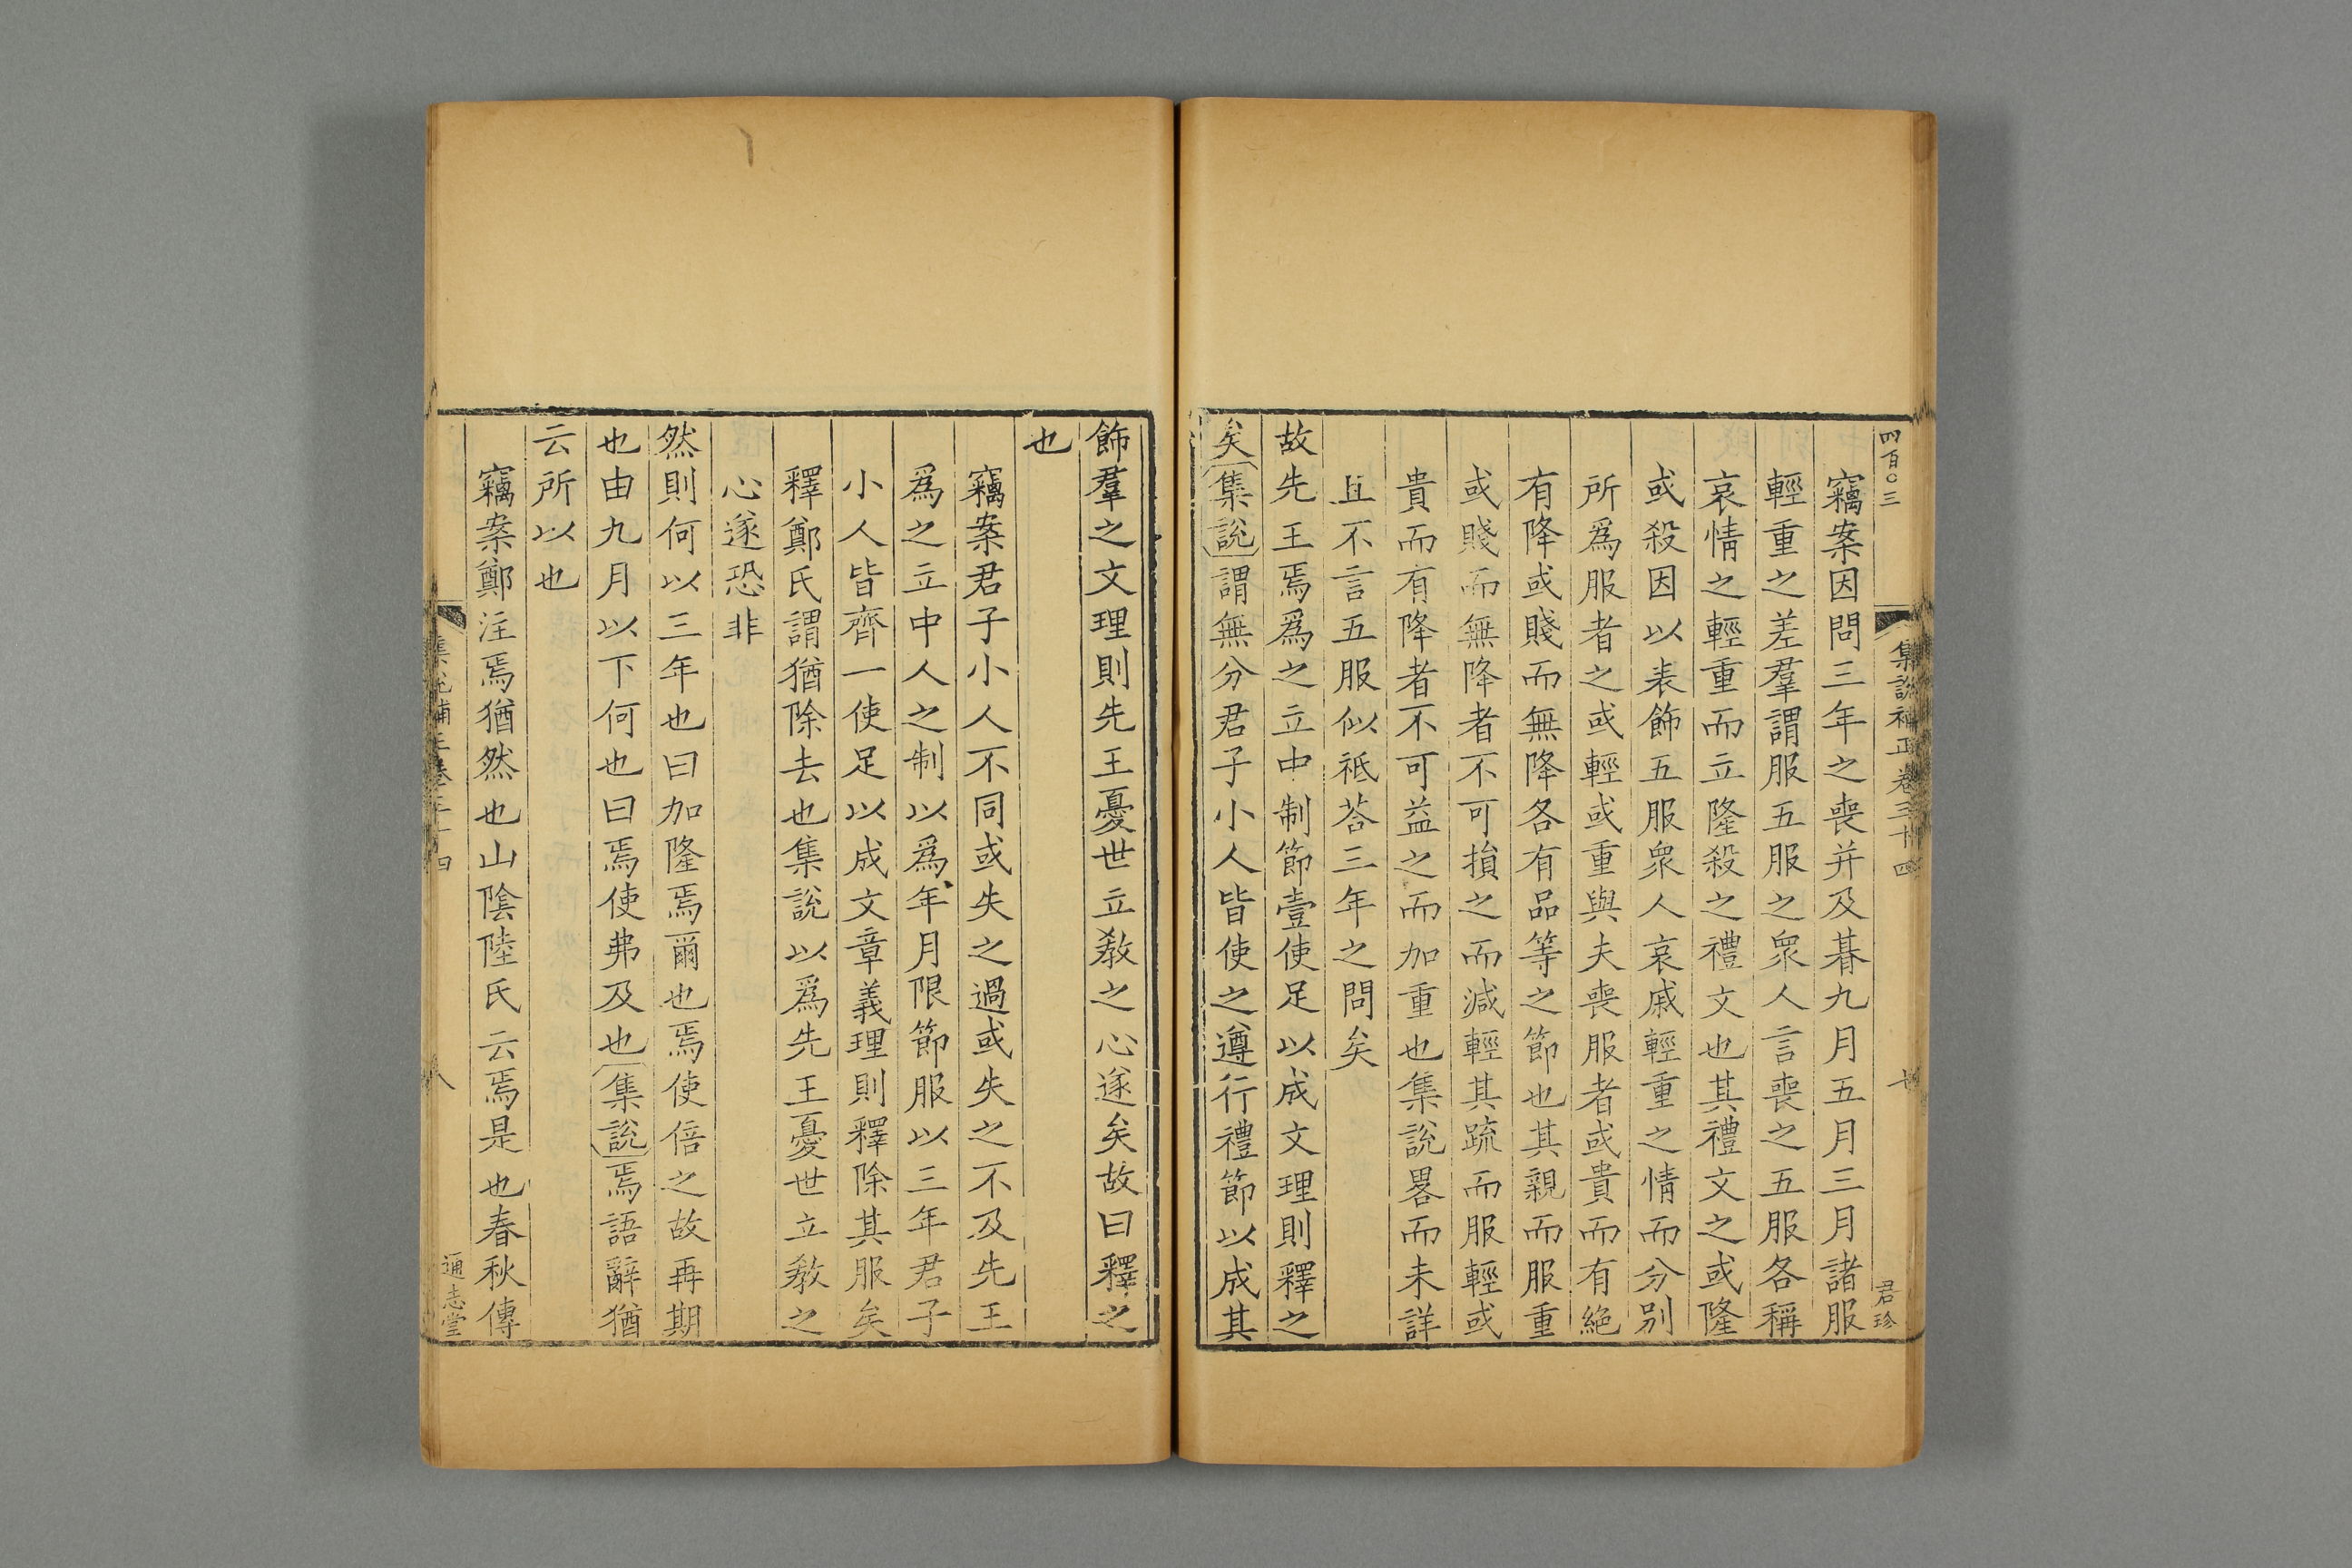 四百〇三
集說補正卷三十四
七
君珍
竊案因問三年之喪并及朞九月五月三月諸服
輕重之差羣謂服五服之衆人言喪之五服各稱
哀情之輕重而立隆殺之禮文也其禮文之或隆
或殺因以表飾五服衆人哀戚輕重之情而分別
所爲服者之或輕或重與夫喪服者或貴而有絶
有降或賤而無降各有品等之節也其親而服重
或賤而無降者不可損之而減輕其疏而服輕或
貴而有降者不可益之而加重也集說畧而未詳
且不言五服似祗荅三年之問矣
故先王焉爲之立中制節壹使足以成文理則釋之
矣集說謂無分君子小人皆使之遵行禮節以成其
飾羣之文理則先王憂世立教之心遂矣故曰釋之
也
竊案君子小人不同或失之過或失之不及先王
爲之立中人之制以爲年月限節服以三年君子
小人皆齊一使足以成文章義理則釋除其服矣
釋鄭氏謂猶除去也集說以爲先王憂世立教之
心遂恐非
然則何以三年也曰加隆焉爾也焉使倍之故再期
也由九月以下何也曰焉使弗及也集說焉語辭猶
云所以也
竊案鄭注焉猶然也山陰陸氏云焉是也春秋傳
集說補正卷三十四
八
通志堂